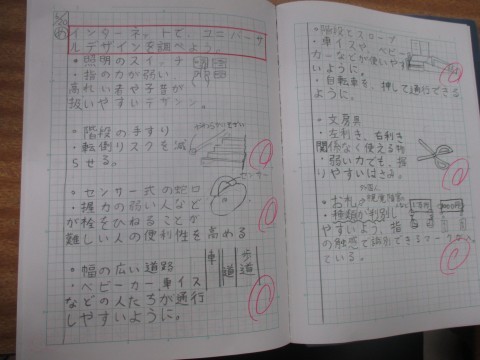 インターネットで、ユニバーサ
ルデザインを調べよう。
・照明のスイッチ
・指の力が弱い、
高れい者や子音が
扱いやすいデザイン。
・階段の手すり
・転倒リスクを減
らせる。
・センサー式の蛇口
・握力の弱い人など
が栓をひねることが
難しい人の便利性を高める
センサー
・幅の広い道路
・ベビーカー、車イス
などの人たちが通行
しやすいように。
車道
歩道
・階段とスロープ
・車イスや、ベビー
カーなどが使いやす
いように。
・自転車を、押して通行できる
ように。
・文房具
・左利き、右利き
関係なく使える物
・弱い力でも、握
りやすいはさみ。
・お札の視覚障害
・種類が判別し
やすいよう、指
の触感で識別できるマーク
ている。